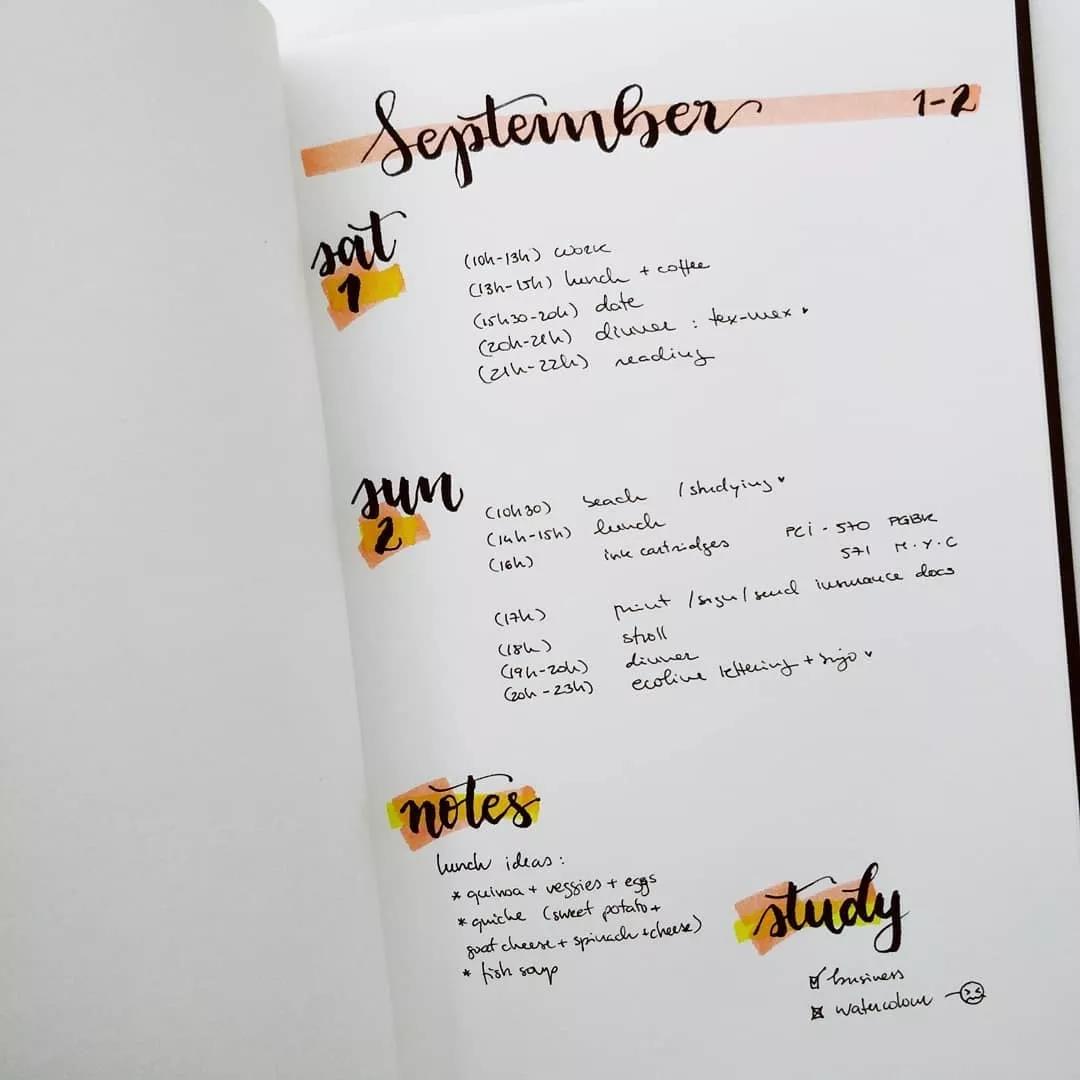 September 1-2
sat
1
(10h-13h) work
(13h-15h) lunch + coffee
(15h30-20h) date
(20h-21h) dinner : tex-mex ♥
(21h-22h) reading
sun
2
(10h30) beach / studying ♥
(14h-15h) lunch
(16h) ink cartridges PCi - 570 PGBK
571 M.Y.C
(17h) print / sign / send insurance docs
(18h) stroll
(19h-20h) dinner
(20h-23h) ecoline lettering +
notes
lunch ideas:
* quinoa + veggies + eggs
* quiche (sweet potato +
goat cheese + spinach + cheese)
* fish soup
study
☑ business
☒ watercolour